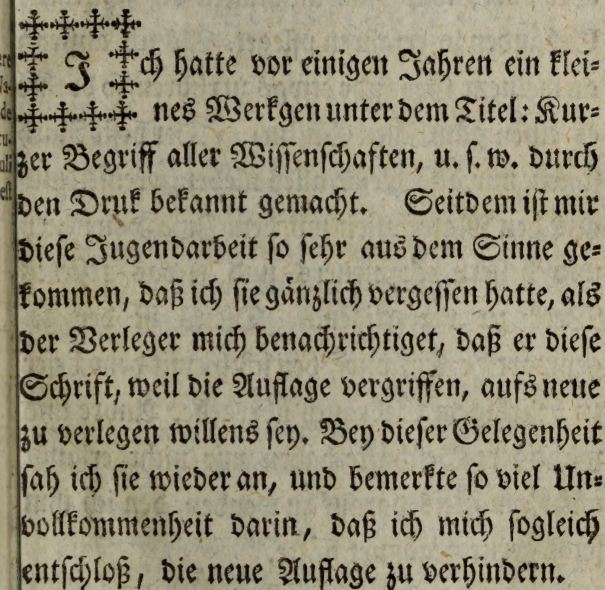 Ich hatte vor einigen Jahren ein klei=
nes Werkgen unter dem Titel: Kur=
zer Begriff aller Wissenschaften, u. s. w. durch
den Druk bekannt gemacht. Seitdem ist mir
diese Jugendarbeit so sehr aus dem Sinne ge=
kommen, daß ich sie gänzlich vergessen hatte, als
der Verleger mich benachrichtiget, daß er diese
Schrift, weil die Auflage vergriffen, aufs neue
zu verlegen willens sey. Bey dieser Gelegenheit
sah ich sie wieder an, und bemerkte so viel Un=
vollkommenheit darin, daß ich mich sogleich
entschloß, die neue Auflage zu verhindern.